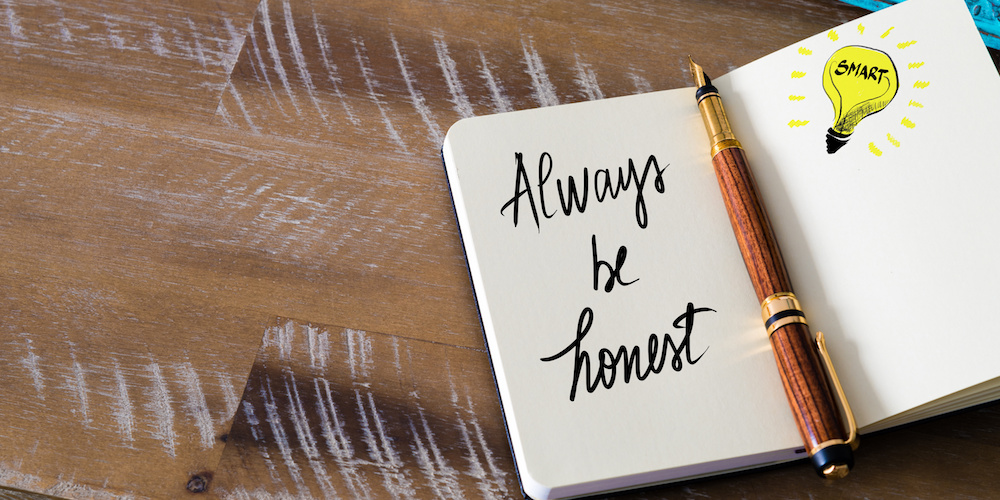 Always
be
honest
SMART